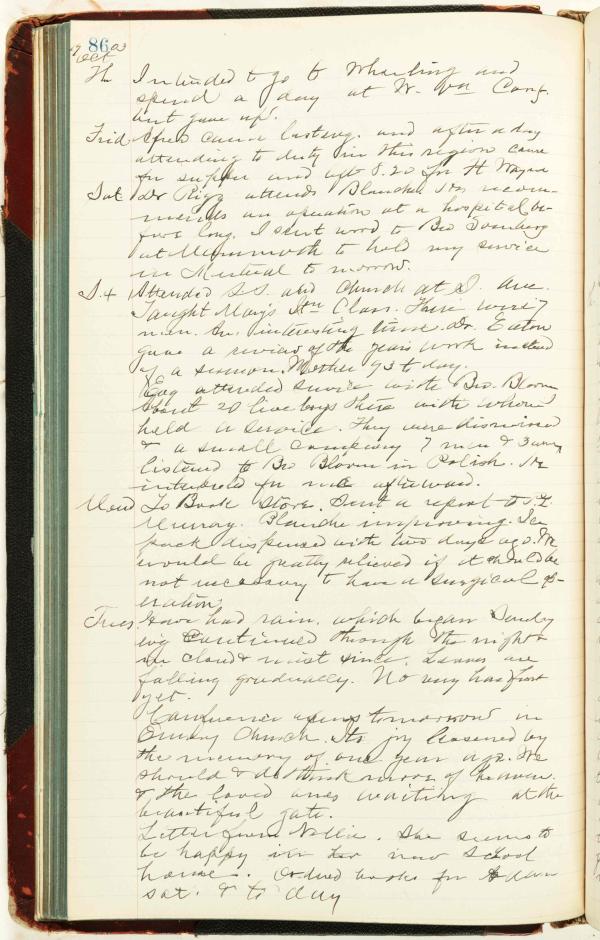 86
Oct
Th. Intended to go to Wheeling and
spend a day at W. Va Conf.
but gave up.
Frid. Fred came last evg. and after a day
attending to duty in this region came
for supper and left 8.20 for Ft Wayne
Sat Dr Rigg attends Blanche. He recom-
mends an operation at a hospital be-
fore long. I sent word to Bro
at Mammoth to hold my service
in Mutual to morrow.
S. 4 Attended S.S. and Church at I. Ave.
Taught Mary's Class. There were 7
men. An interesting time. Dr. Eaton
gave a review of the years work instead
of a sermon. Mother 93 to day.
Evg attended service with Bro. Bloom
About 20 live boys there with whom
held a service. They were dismissed
& a small company 7 men & 3 women
listened to Bro Bloom in Polish. He
interpreted for me afterward.
Mond To Book Store. Sent a report to
Murray. Blanche improving. Ice
pack dispensed with two days ago. We
would be greatly relieved if it should be
not necessary to have a surgical op-
eration
Tues. Have had rain, which began Sunday
evg continued through the night &
in cloud & mist since. Leaves are
falling gradually. No very hard frost
yet.
Conference opens tomorrow in
Emory Church. Its joy lessened by
the memory of one year ago. We
should & do think more of heaven
& the loved ones waiting at the
beautiful gate.
Letter from Nellie. She seems to
be happy in her new School
home. Ordered books for
Sat. & to day